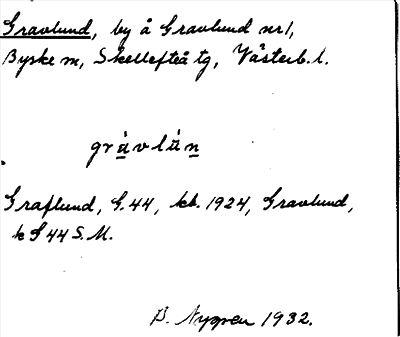 Gravlund, by å Gravlund nr 1,
Byske sn, Skellefteå tg, Västerb. l.
gràvlún
Graflund, G. 44, kb. 1924, Gravlund,
k G 44 S.M.
B. Nygren 1932.